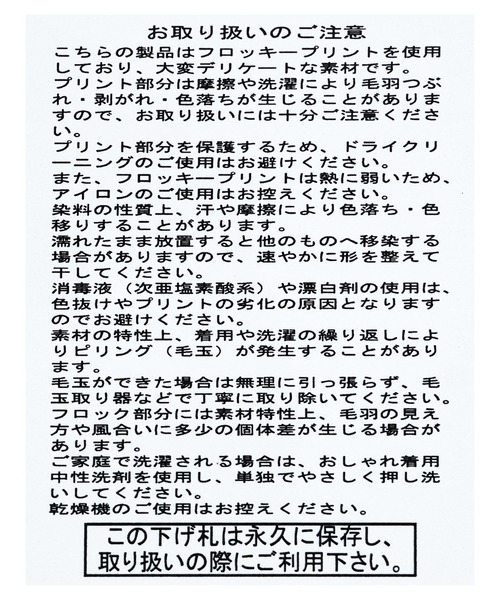 お取り扱いのご注意
こちらの製品はフロッキープリントを使用
しており、大変デリケートな素材です。
プリント部分は摩擦や洗濯により毛羽つぶ
れ・剥がれ・色落ちが生じることがありま
すので、お取り扱いには十分ご注意くださ
い。
プリント部分を保護するため、ドライクリ
ーニングのご使用はお避けください。
また、フロッキープリントは熱に弱いため、
アイロンのご使用はお控えください。
染料の性質上、汗や摩擦により色落ち・色
移りすることがあります。
濡れたまま放置すると他のものへ移染する
場合がありますので、速やかに形を整えて
干してください。
消毒液（次亜塩素酸系）や漂白剤の使用は、
色抜けやプリントの劣化の原因となります
のでお避けください。
素材の特性上、着用や洗濯の繰り返しによ
りピリング（毛玉）が発生することがあり
ます。
毛玉ができた場合は無理に引っ張らず、毛
玉取り器などで丁寧に取り除いてください。
フロック部分には素材特性上、毛羽の見え
方や風合いに多少の個体差が生じる場合が
あります。
ご家庭で洗濯される場合は、おしゃれ着用
中性洗剤を使用し、単独でやさしく押し洗
いしてください。
乾燥機のご使用はお控えください。
この下げ札は永久に保存し、
取り扱いの際にご利用下さい。